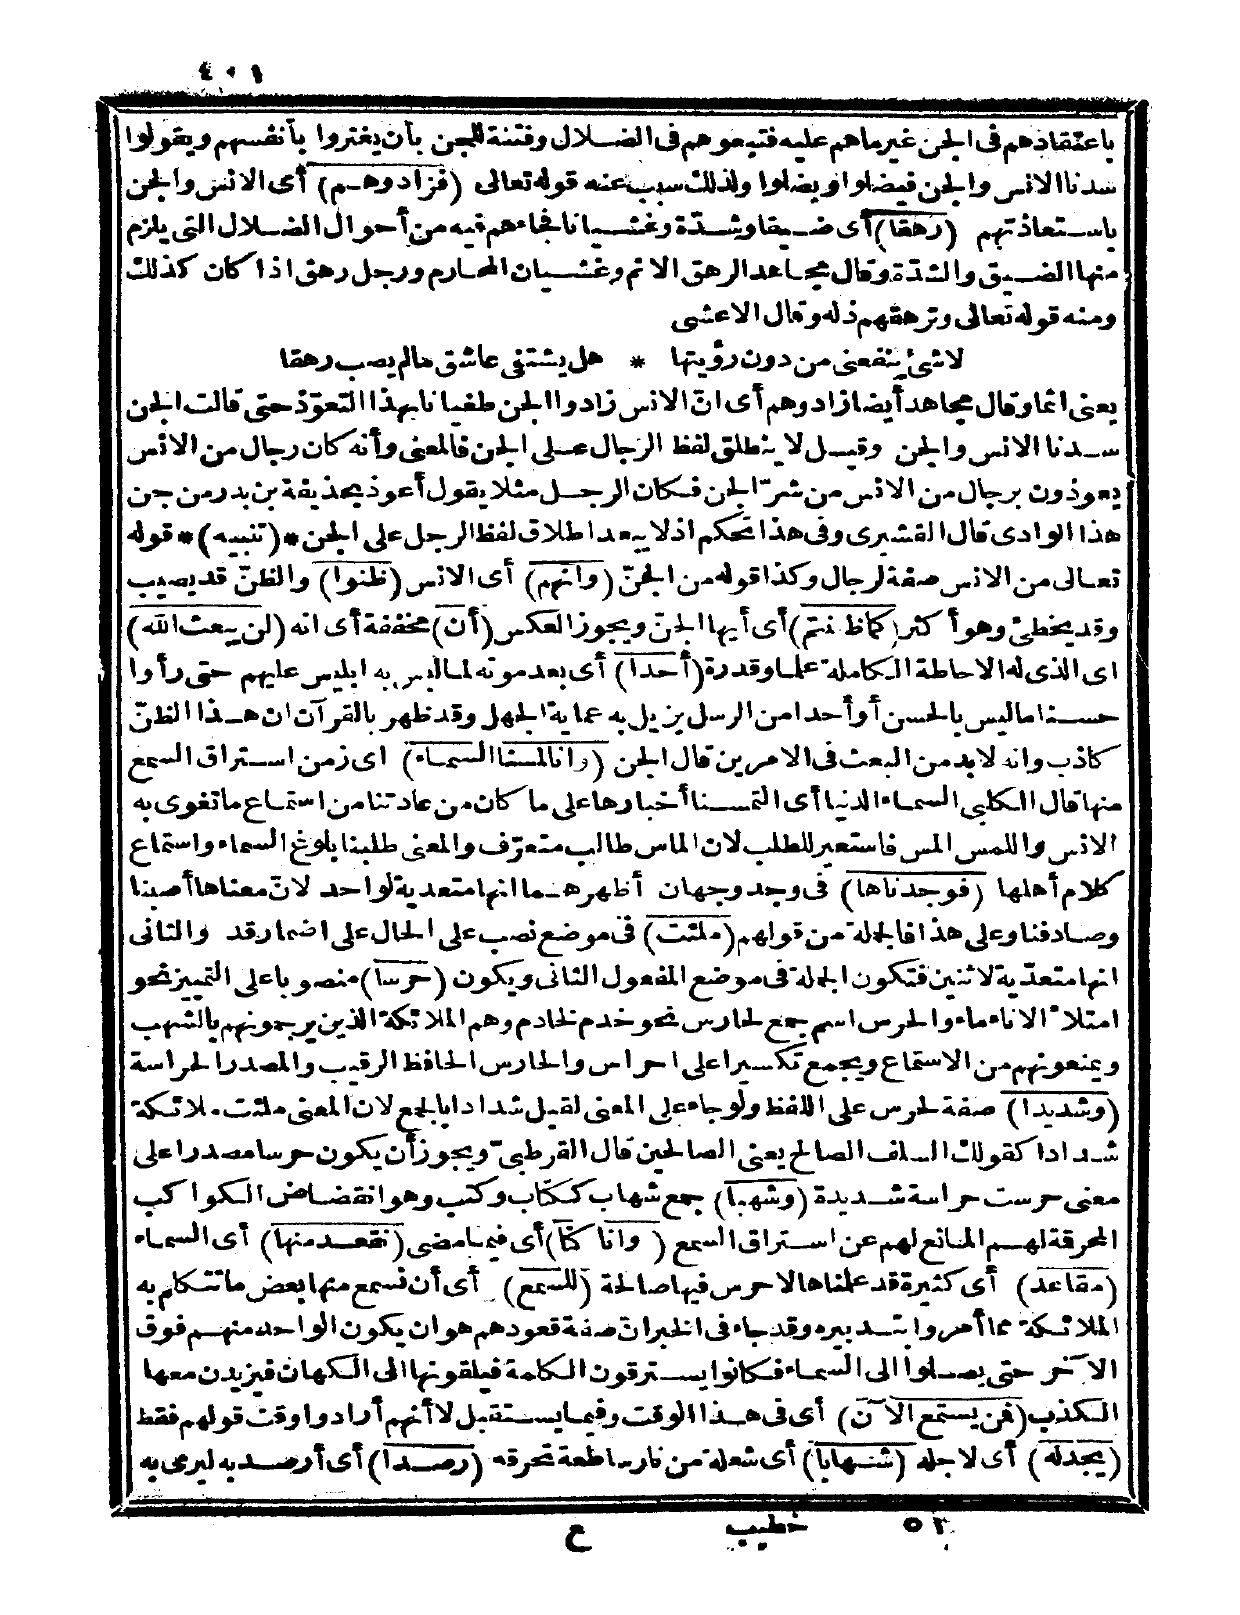 ٤٠١
باعتقادهم فى الجن غير ما هم عليه فتبعوهم فى الضلال وفتنة للجن بأن يغتروا بأنفسهم ويقولوا
سدنا الانس والجن فيضلوا ويضلوا ولذلك سبب عنه قوله تعالى (فزادوهم) أى الانس والجن
باستعاذتهم (رهقا) أى ضيقا وشدّة وغشيانا فجاءهم فيه من أحوال الضلال التى يلزم
منها الضيق والشدّة وقال مجاهد الرهق الاثم وغشيان المحارم ورجل رهق اذا كان كذلك
ومنه قوله تعالى وترهقهم ذلة وقال الاعشى
لا شئ ينفعنى من دون رؤيتها * هل يشتفى عاشق ما لم يصب رهقا
يعنى اثما وقال مجاهد أيضا زادوهم أى انّ الانس زادوا الجن طغيانا بهذا التعوّذ حتى قالت الجن
سدنا الانس والجن وقيل لا ينطلق لفظ الرجال على الجن فالمعنى وأنه كان رجال من الانس
يعوذون برجال من الانس من شرّ الجن فكان الرجل مثلا يقول أعوذ بحذيفة بن بدر من جن
هذا الوادى قال القشيرى وفى هذا تحكم اذ لا يبعد اطلاق لفظ الرجل على الجن *(تنبيه)* قوله
تعالى من الانس صفة لرجال وكذا قوله من الجنّ (وانهم) أى الانس (ظنوا) والظنّ قد يصيب
وقد يخطئ وهو أكثر (كما ظننتم) أى أيها الجنّ ويجوز العكس (أن) مخففة أى انه (لن يبعث الله)
اى الذى له الاحاطة الكاملة علما وقدرة (أحدا) أى بعد موته لما لبس به ابليس عليهم حتى رأوا
حسنا ما ليس بالحسن أو أحدا من الرسل يزيل به عماية الجهل وقد ظهر بالقرآن ان هذا الظنّ
كاذب وانه لا بد من البعث فى الامرين قال الجن (وانا لمسنا السماء) اى زمن استراق السمع
منها قال الكلبى السماء الدنيا أى التمسنا أخبارها على ما كان من عادتنا من استماع ما تغوى به
الانس واللمس المس فاستعير للطلب لان الماس طالب متعرّف والمعنى طلبنا بلوغ السماء واستماع
كلام أهلها (فوجدناها) فى وجد وجهان أظهرهما انها متعدية لواحد لانّ معناها أصبنا
وصادفنا وعلى هذا فالجملة من قولهم (ملئت) فى موضع نصب على الحال على اضمار قد والثانى
انها متعدّية لاثنين فتكون الجملة فى موضع المفعول الثانى ويكون (حرسا) منصوبا على التمييز نحو
امتلأ الاناء ماء والحرس اسم جمع لحارس نحو خدم لخادم وهم الملائكة الذين يرجمونهم بالشهب
ويمنعونهم من الاستماع ويجمع تكسيرا على احراس والحارس الحافظ الرقيب والمصدر الحراسة
(وشديدا) صفة لحرس على اللفظ ولو جاء على المعنى لقيل شدادا بالجمع لان المعنى ملئت ملائكة
شدادا كقولك السلف الصالح يعنى الصالحين قال القرطبىّ ويجوز أن يكون حرسا مصدرا على
معنى حرست حراسة شديدة (وشهبا) جمع شهاب ككتاب وكتب وهو انقضاض الكواكب
المحرقة لهم المانع لهم عن استراق السمع (وانا كنّا) أى فيما مضى (نقعد منها) أى السماء
(مقاعد) أى كثيرة قد علمناها لا حرس فيها صالحة (للسمع) أى أن نسمع منها بعض ما تتكلم به
الملائكة مما أمروا بتدبيره وقد جاء فى الخبر انّ صفة قعودهم هو ان يكون الواحد منهم فوق
الآخر حتى يصلوا الى السماء فكانوا يسترقون الكلمة فيلقونها الى الكهان فيزيدن معها
الكذب (فمن يستمع الآن) أى فى هذا الوقت وفيما يستقبل لا أنهم أرادوا وقت قولهم فقط
(يجد له) أى لاجله (شهابا) أى شعلة من نار ساطعة تحرقه (رصدا) أى أرصد به ليرمى به
٥١ خطيب ع